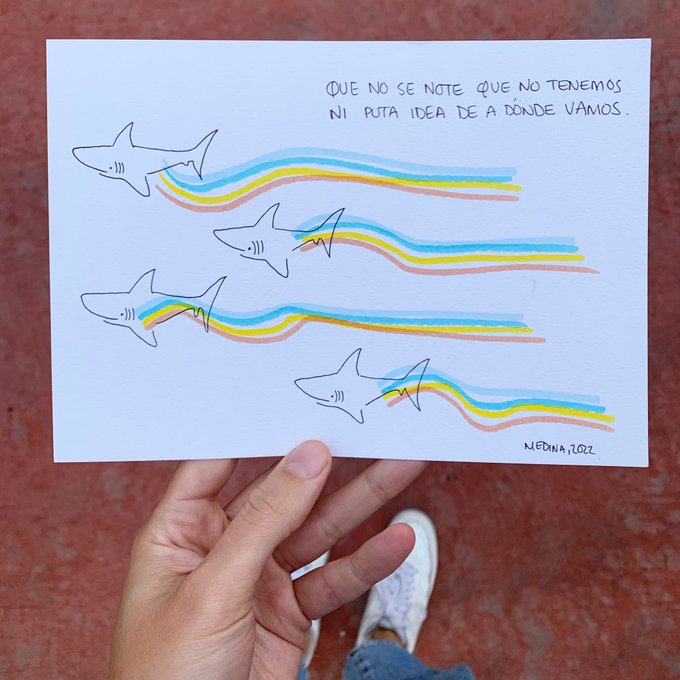 QUE NO SE NOTE QUE NO TENEMOS
NI PUTA IDEA DE A DÓNDE VAMOS.
MEDINA, 2022